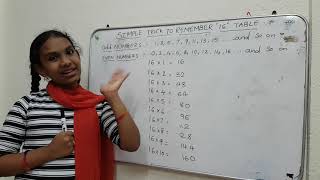 SIMPLE TRICK TO REMEMBER '16' TABLE
ODD NUMBERS : 1, 3, 5, 7, 9, 11, 13, 15 ... and so on
EVEN NUMBERS : 0, 2, 4, 6, 8, 10, 12, 14, 16 ... and so on
16 x 1 = 16
16 x 2 = 32
16 x 3 = 48
16 x 4 = 64
16 x 5 = 80
16 x 6 = 96
16 x 7 = 12
16 x 8 = 28
16 x 9 = 144
16 x 10 = 160